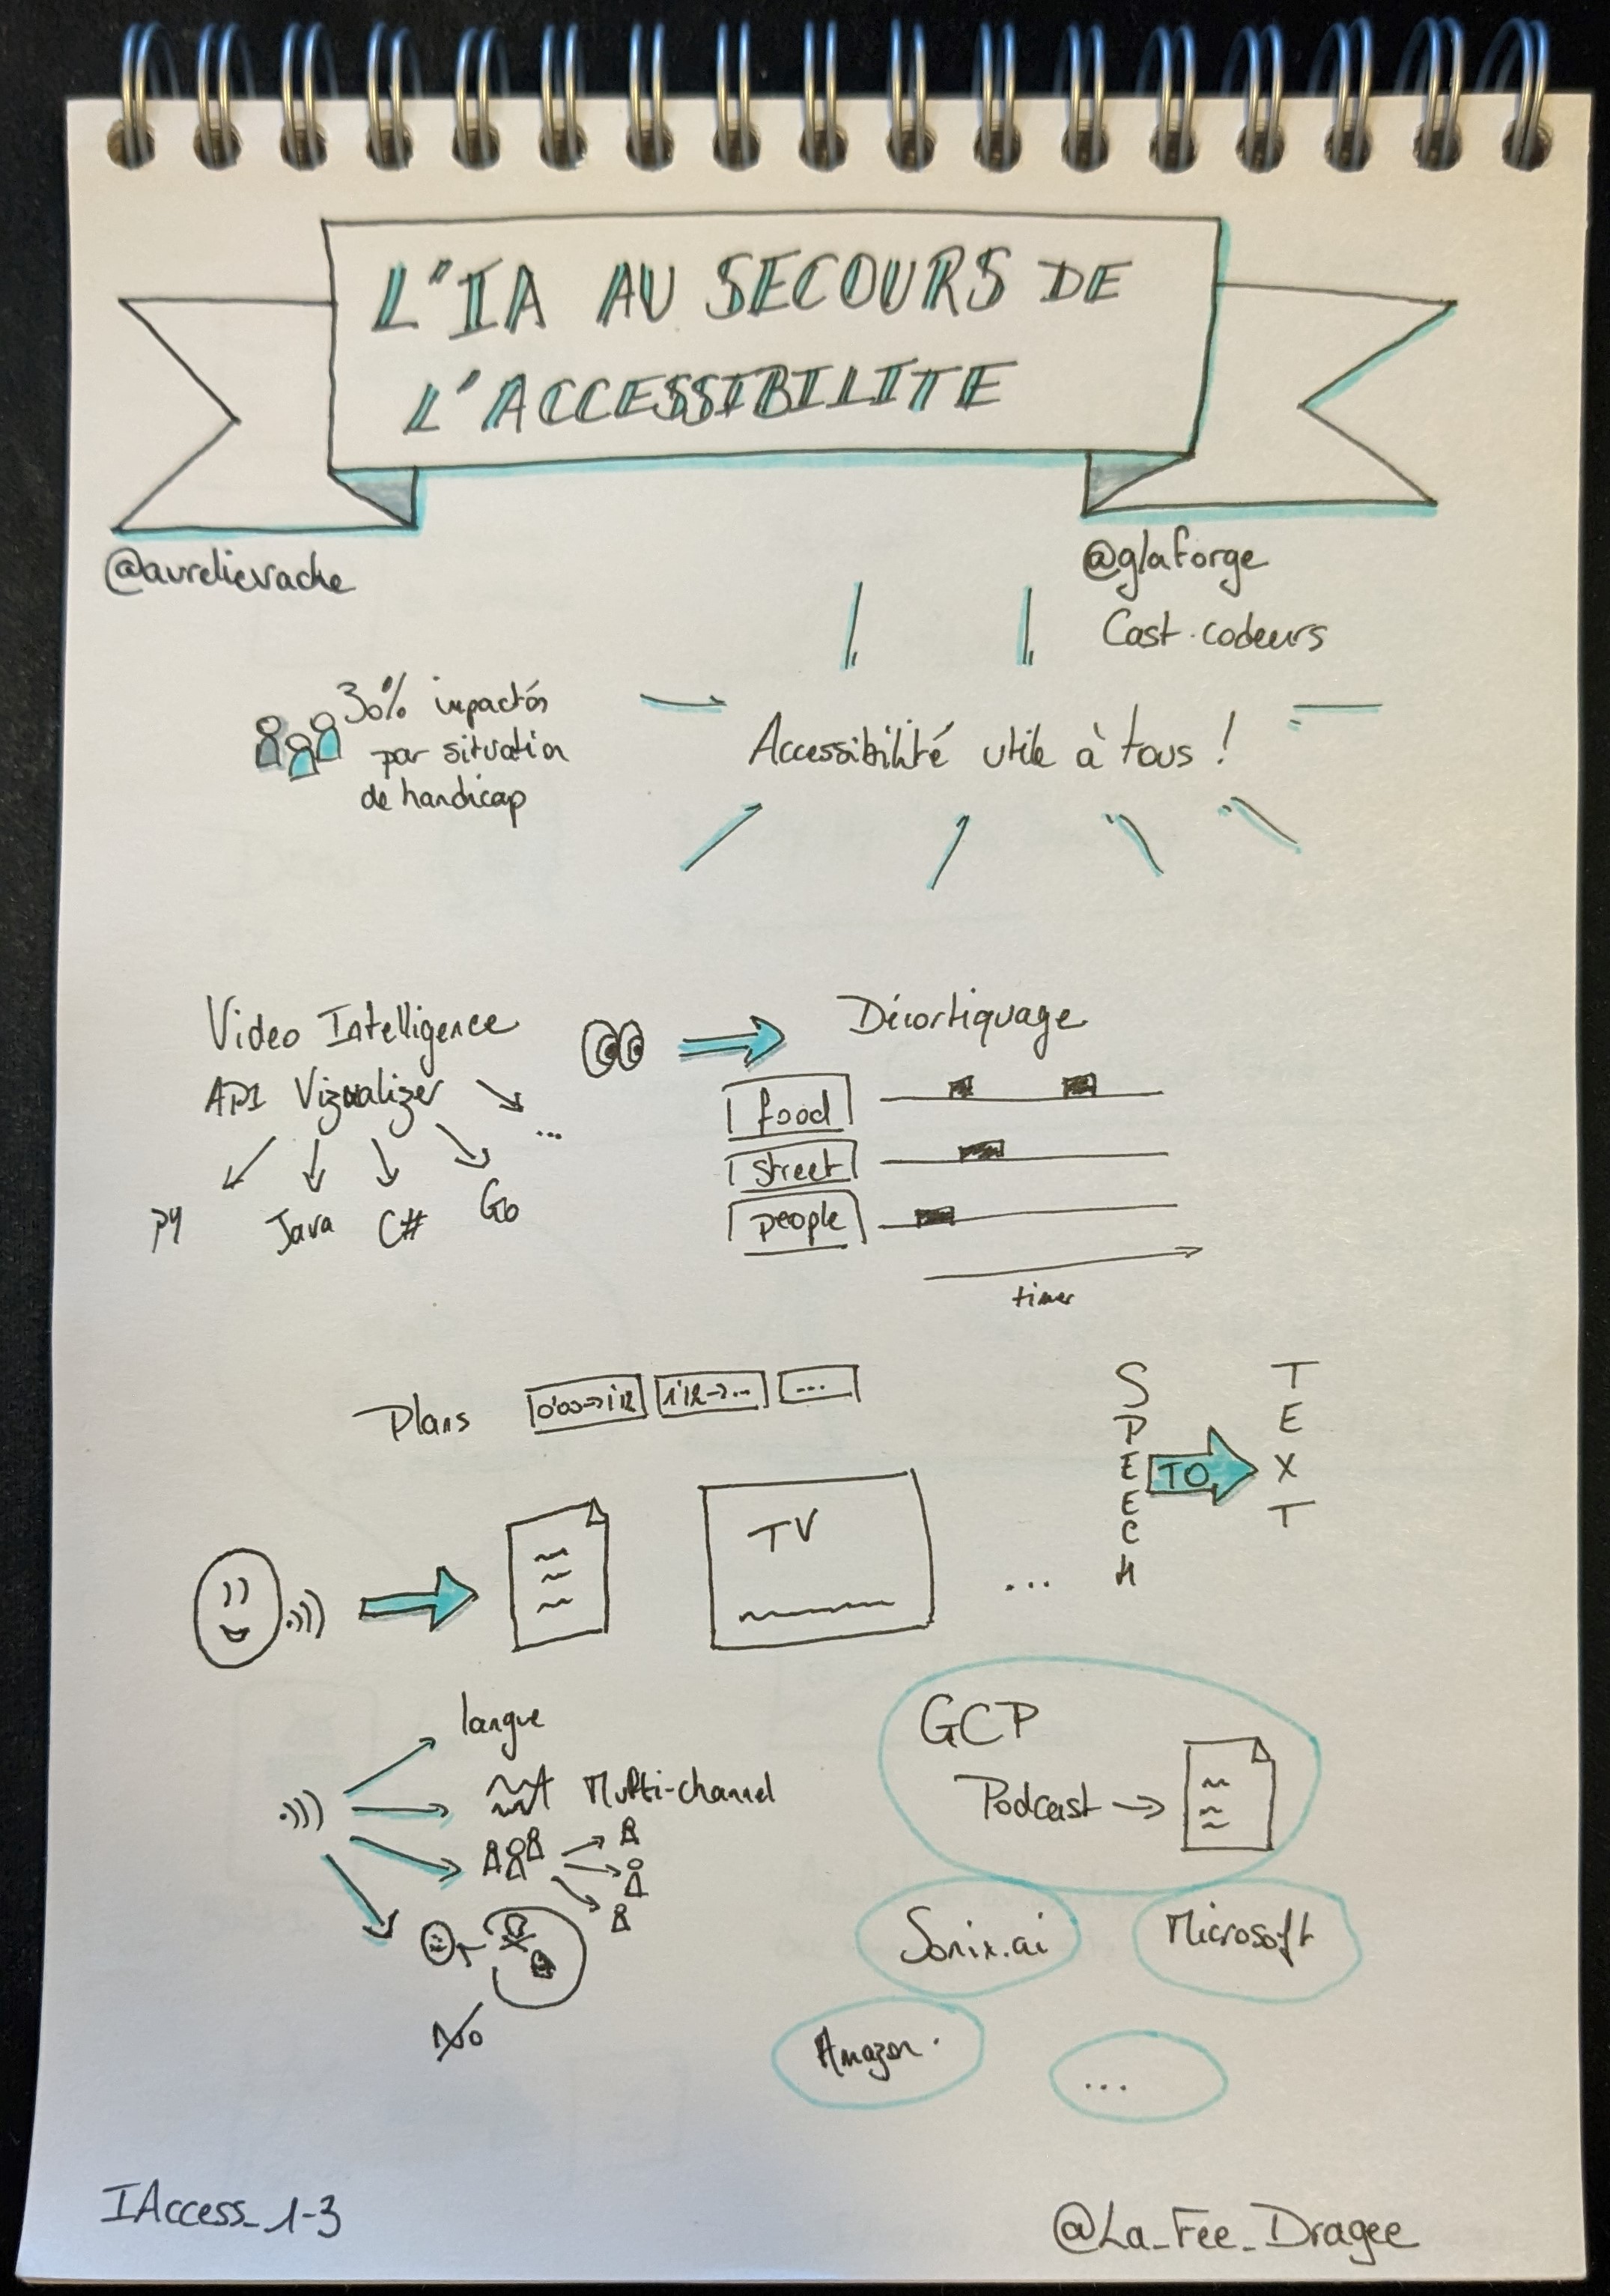 L'IA AU SECOURS DE
L'ACCESSIBILITE
@aurelievache
@glaforge
Cast.codeurs
30% impactés
par situation
de handicap
Accessibilité utile à tous !
Video Intelligence
API Vizualizer
...
py
Java
C#
Go
Décortiquage
food
street
people
timer
Plans
0'00->1'12
1'12->...
...
SPEECH
TO
TEXT
TV
...
langue
Multi-channel
No
GCP
Podcast
Sonix.ai
Microsoft
Amazon.
...
IAccess_1-3
@La_Fee_Dragee